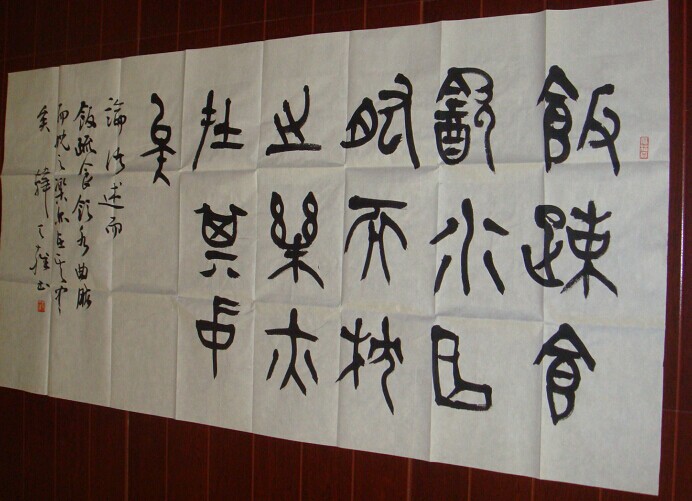 飯疏食
飲水曲
肱而枕
之樂亦
在其中
矣
論語述而
飯疏食飲水曲肱
而枕之樂亦在其中
矣 韓
書